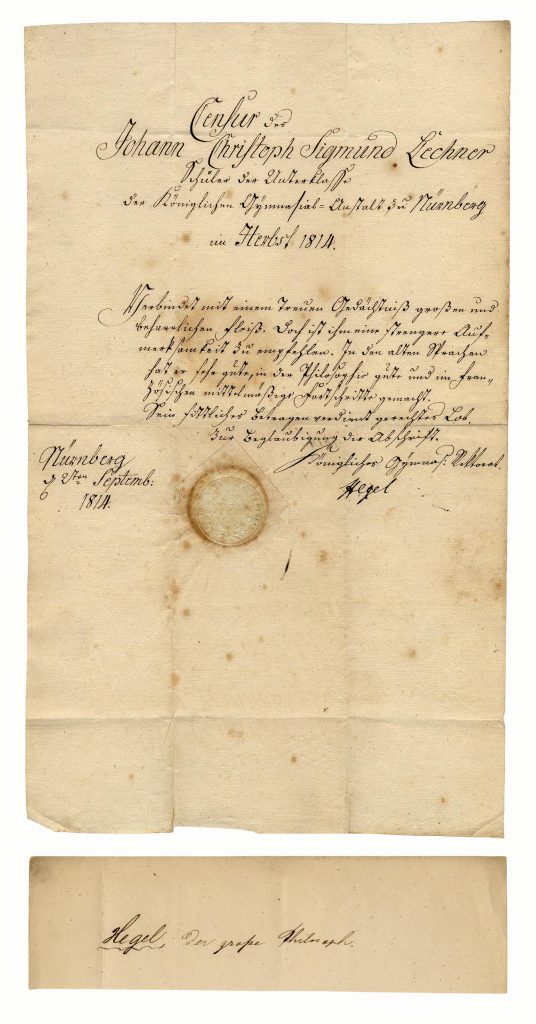 Censur des
Johann Christoph Sigmund Lechner
Schüler der Unterklasse
der Königlichen Gymnasial-Anstalt zu Nürnberg
im Herbst 1814.
Verbindet mit einem treuen Gedächtniß großen und
beharrlichen Fleiß. Doch ist ihm eine strengere Auf-
merksamkeit zu empfehlen. In den alten Sprachen
hat er sehr gute, in der Philosophie gute und im Fran-
zösischen mittelmäßige Fortschritte gemacht.
Sein sittliches Betragen verdient gerechtes Lob.
Zur Beglaubigung der Abschrift.
Nürnberg
Königliches Gymnas: Rektorat.
d 2ten Septemb:
Hegel
1814.
Hegel, der große Philosoph.